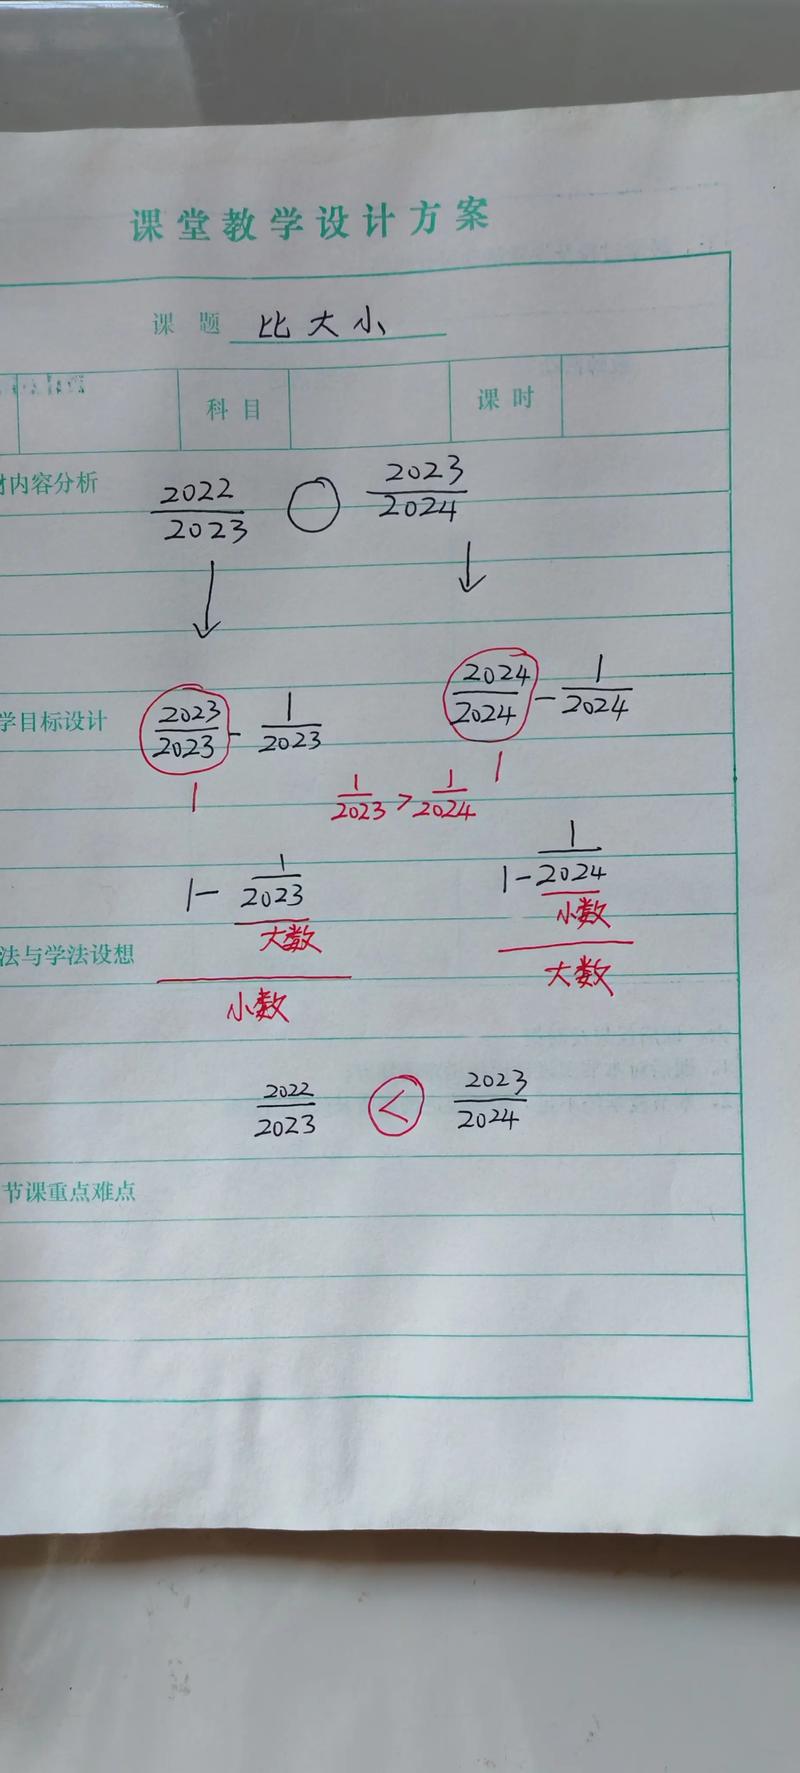 课堂教学设计方案
课 题 比大小
科目 课时
材内容分析
2022/2023 ○ 2023/2024
↓ ↓
学目标设计
2023/2023 - 1/2023 2024/2024 - 1/2024
1 1/2023 > 1/2024 1
1 - 1/2023 1 - 1/2024
大数 小数
法与学法设想
小数 大数
2022/2023 < 2023/2024
节课重点难点